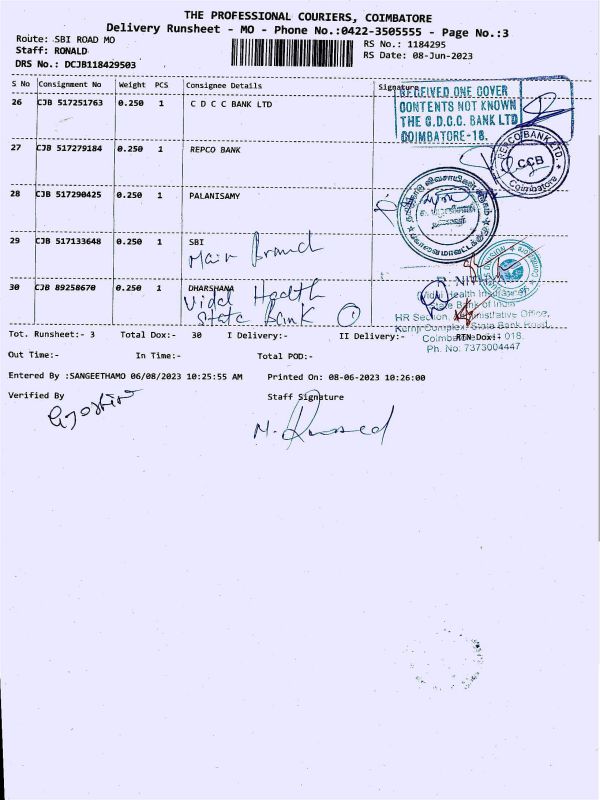 THE PROFESSIONAL COURIERS, COIMBATORE
Delivery Runsheet - MO - Phone No.:0422-3505555 - Page No.:3
Route: SBI ROAD MO
RS No.: 1184295
Staff: RONALD
RS Date: 08-Jun-2023
DRS No.: DCJB118429503
S No Consignment No Weight PCS Consignee Details Signature
26 CJB 517251763 0.250 1 C D C C BANK LTD
RECEIVED ONE COVER
CONTENTS NOT KNOWN
THE C.D.C.C. BANK LTD
COIMBATORE-18.
27 CJB 517279184 0.250 1 REPCO BANK
REPCO BANK LTD.
CCB
Coimbatore
28 CJB 517290425 0.250 1 PALANISAMY
29 CJB 517133648 0.250 1 SBI
Main Branch
30 CJB 89258670 0.250 1 DHARSHANA
Vidal Health
State Bank
Vidal Health
State Bank of India
HR Section, Administrative Office,
State Bank Road,
Coimbatore 018.
Ph. No: 7373004447
Tot. Runsheet:- 3 Total Dox:- 30 I Delivery:- II Delivery:- RTN Dox:-
Out Time:- In Time:- Total POD:-
Entered By :SANGEETHAMO 06/08/2023 10:25:55 AM Printed On: 08-06-2023 10:26:00
Verified By Staff Signature